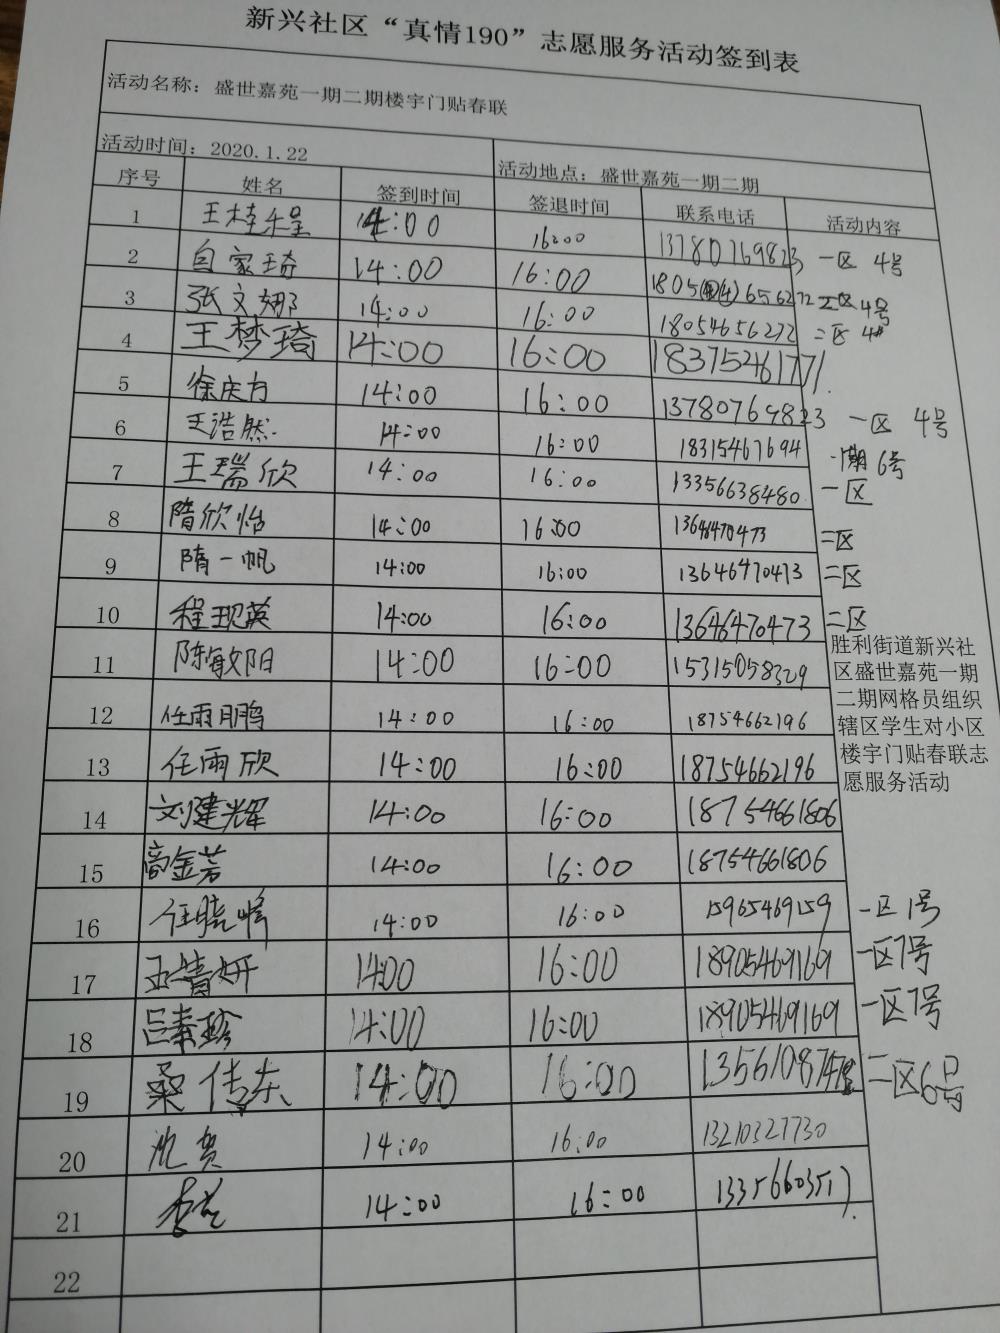 新兴社区“真情190”志愿服务活动签到表
活动名称：盛世嘉苑一期二期楼宇门贴春联
活动时间：2020.1.22 活动地点：盛世嘉苑一期二期
序号 姓名 签到时间 签退时间 联系电话 活动内容
1 王桂 14:00 16:00 13780769823 一区 4号
2 白家琦 14:00 16:00 1805 656272 二区4号
3 张文娜 14:00 16:00 18054656272 二区 4#
4 王梦琦 14:00 16:00 18375461771
5 徐庆方 14:00 16:00 13780769823 一区 4号
6 王浩然 14:00 16:00 18315467694 一期6号
7 王瑞欣 14:00 16:00 13356638480 一区
8 隋欣怡 14:00 16:00 13646470473 二区
9 隋一帆 14:00 16:00 13646470473 二区
10 程现英 14:00 16:00 13646470473 二区
11 陈敏阳 14:00 16:00 15315058329
12 任雨鹏 14:00 16:00 18754662196
13 任雨欣 14:00 16:00 18754662196
胜利街道新兴社
区盛世嘉苑一期
二期网格员组织
辖区学生对小区
楼宇门贴春联志
愿服务活动
14 刘建辉 14:00 16:00 18754661806
15 高金芳 14:00 16:00 18754661806
16 任晓峰 14:00 16:00 15965469159 一区1号
17 王婧妍 14:00 16:00 18905469169 一区7号
18 吕素珍 14:00 16:00 18905469169 一区7号
19 桑传东 14:00 16:00 二区6号
20 14:00 16:00 13210327730
21 14:00 16:00 13356603517
22